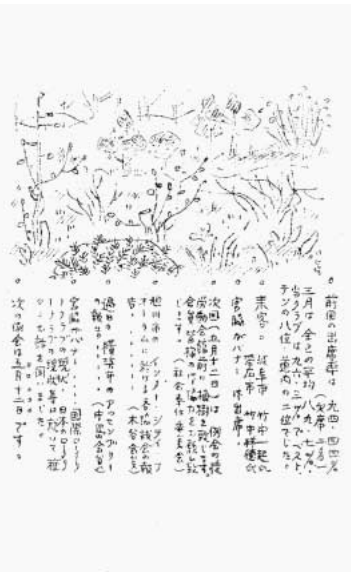 。前回の出席率は 九四・四四%
(欠席 二名)
三月は 全会の平均 八九・七%。
当クラブは 九六・三%で、ベスト
テンの八位、道内の二位でした。
。来客。 岐阜市 竹中
岩見沢市
宮脇ガバナー
。次回(五月十二日)は 例会の後
労働会館前に植樹を致します。
会員皆様のご協力をお願い致
します。(社会奉仕委員会)
。旭川市の インター・シティ・フ
ォーラムに於ける各協議会の報
告・・・・・(木谷会長)
。過日の 横浜市のアッセンブリー
の報告・・・・(中島会員)
。宮脇ガバナー・・・・国際ロータリ
ークラブの現状、日本のロータリ
ークラブの現状等に就いて種
々お話を伺いました。
。次の例会は五月十二日です。